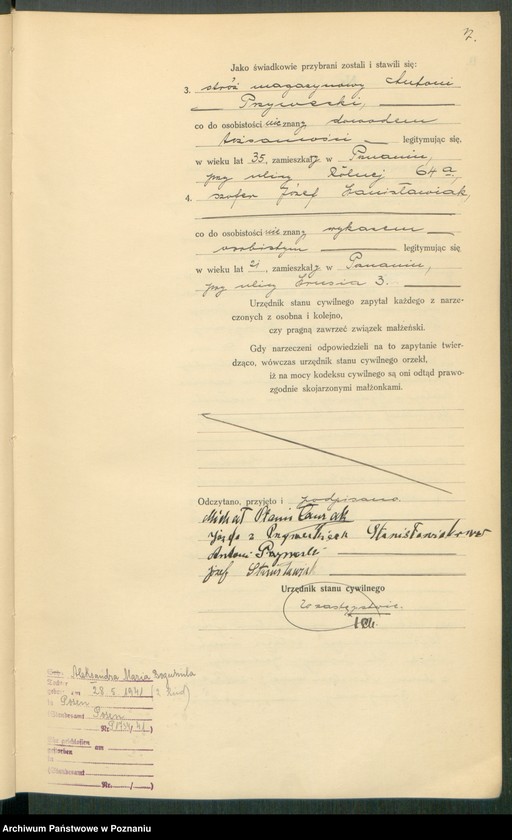 2.
Jako świadkowie przybrani zostali i stawili się:
3. stróż magazynowy Antoni
Przywecki,
co do osobistości nie znany, dowodem
tożsamości legitymując się,
w wieku lat 35, zamieszkały w Poznaniu,
przy ulicy Rolnej 64a.
4. szofer Józef Stanisławiak,
co do osobistości nie znany wykazem
osobistym legitymując się
w wieku lat 21, zamieszkały w Poznaniu,
przy ulicy 3.
Urzędnik stanu cywilnego zapytał każdego z narze-
czonych z osobna i kolejno,
czy pragną zawrzeć związek małżeński.
Gdy narzeczeni odpowiedzieli na to zapytanie twier-
dząco, wówczas urzędnik stanu cywilnego orzekł,
iż na mocy kodeksu cywilnego są oni odtąd prawo-
zgodnie skojarzonymi małżonkami.
Odczytano, przyjęto i podpisano
Michał Stanisławiak
z Stanisławiakowa
Antoni
Józef Stanisławiak
Urzędnik stanu cywilnego
W zastępstwie
Aleksandra Maria Bogumila
geb. am 28.5.1941 (2. Kind)
in Posen
(Standesamt Posen
Nr.
am
in
(Standesamt
Nr. / )
Archiwum Państwowe w Poznaniu